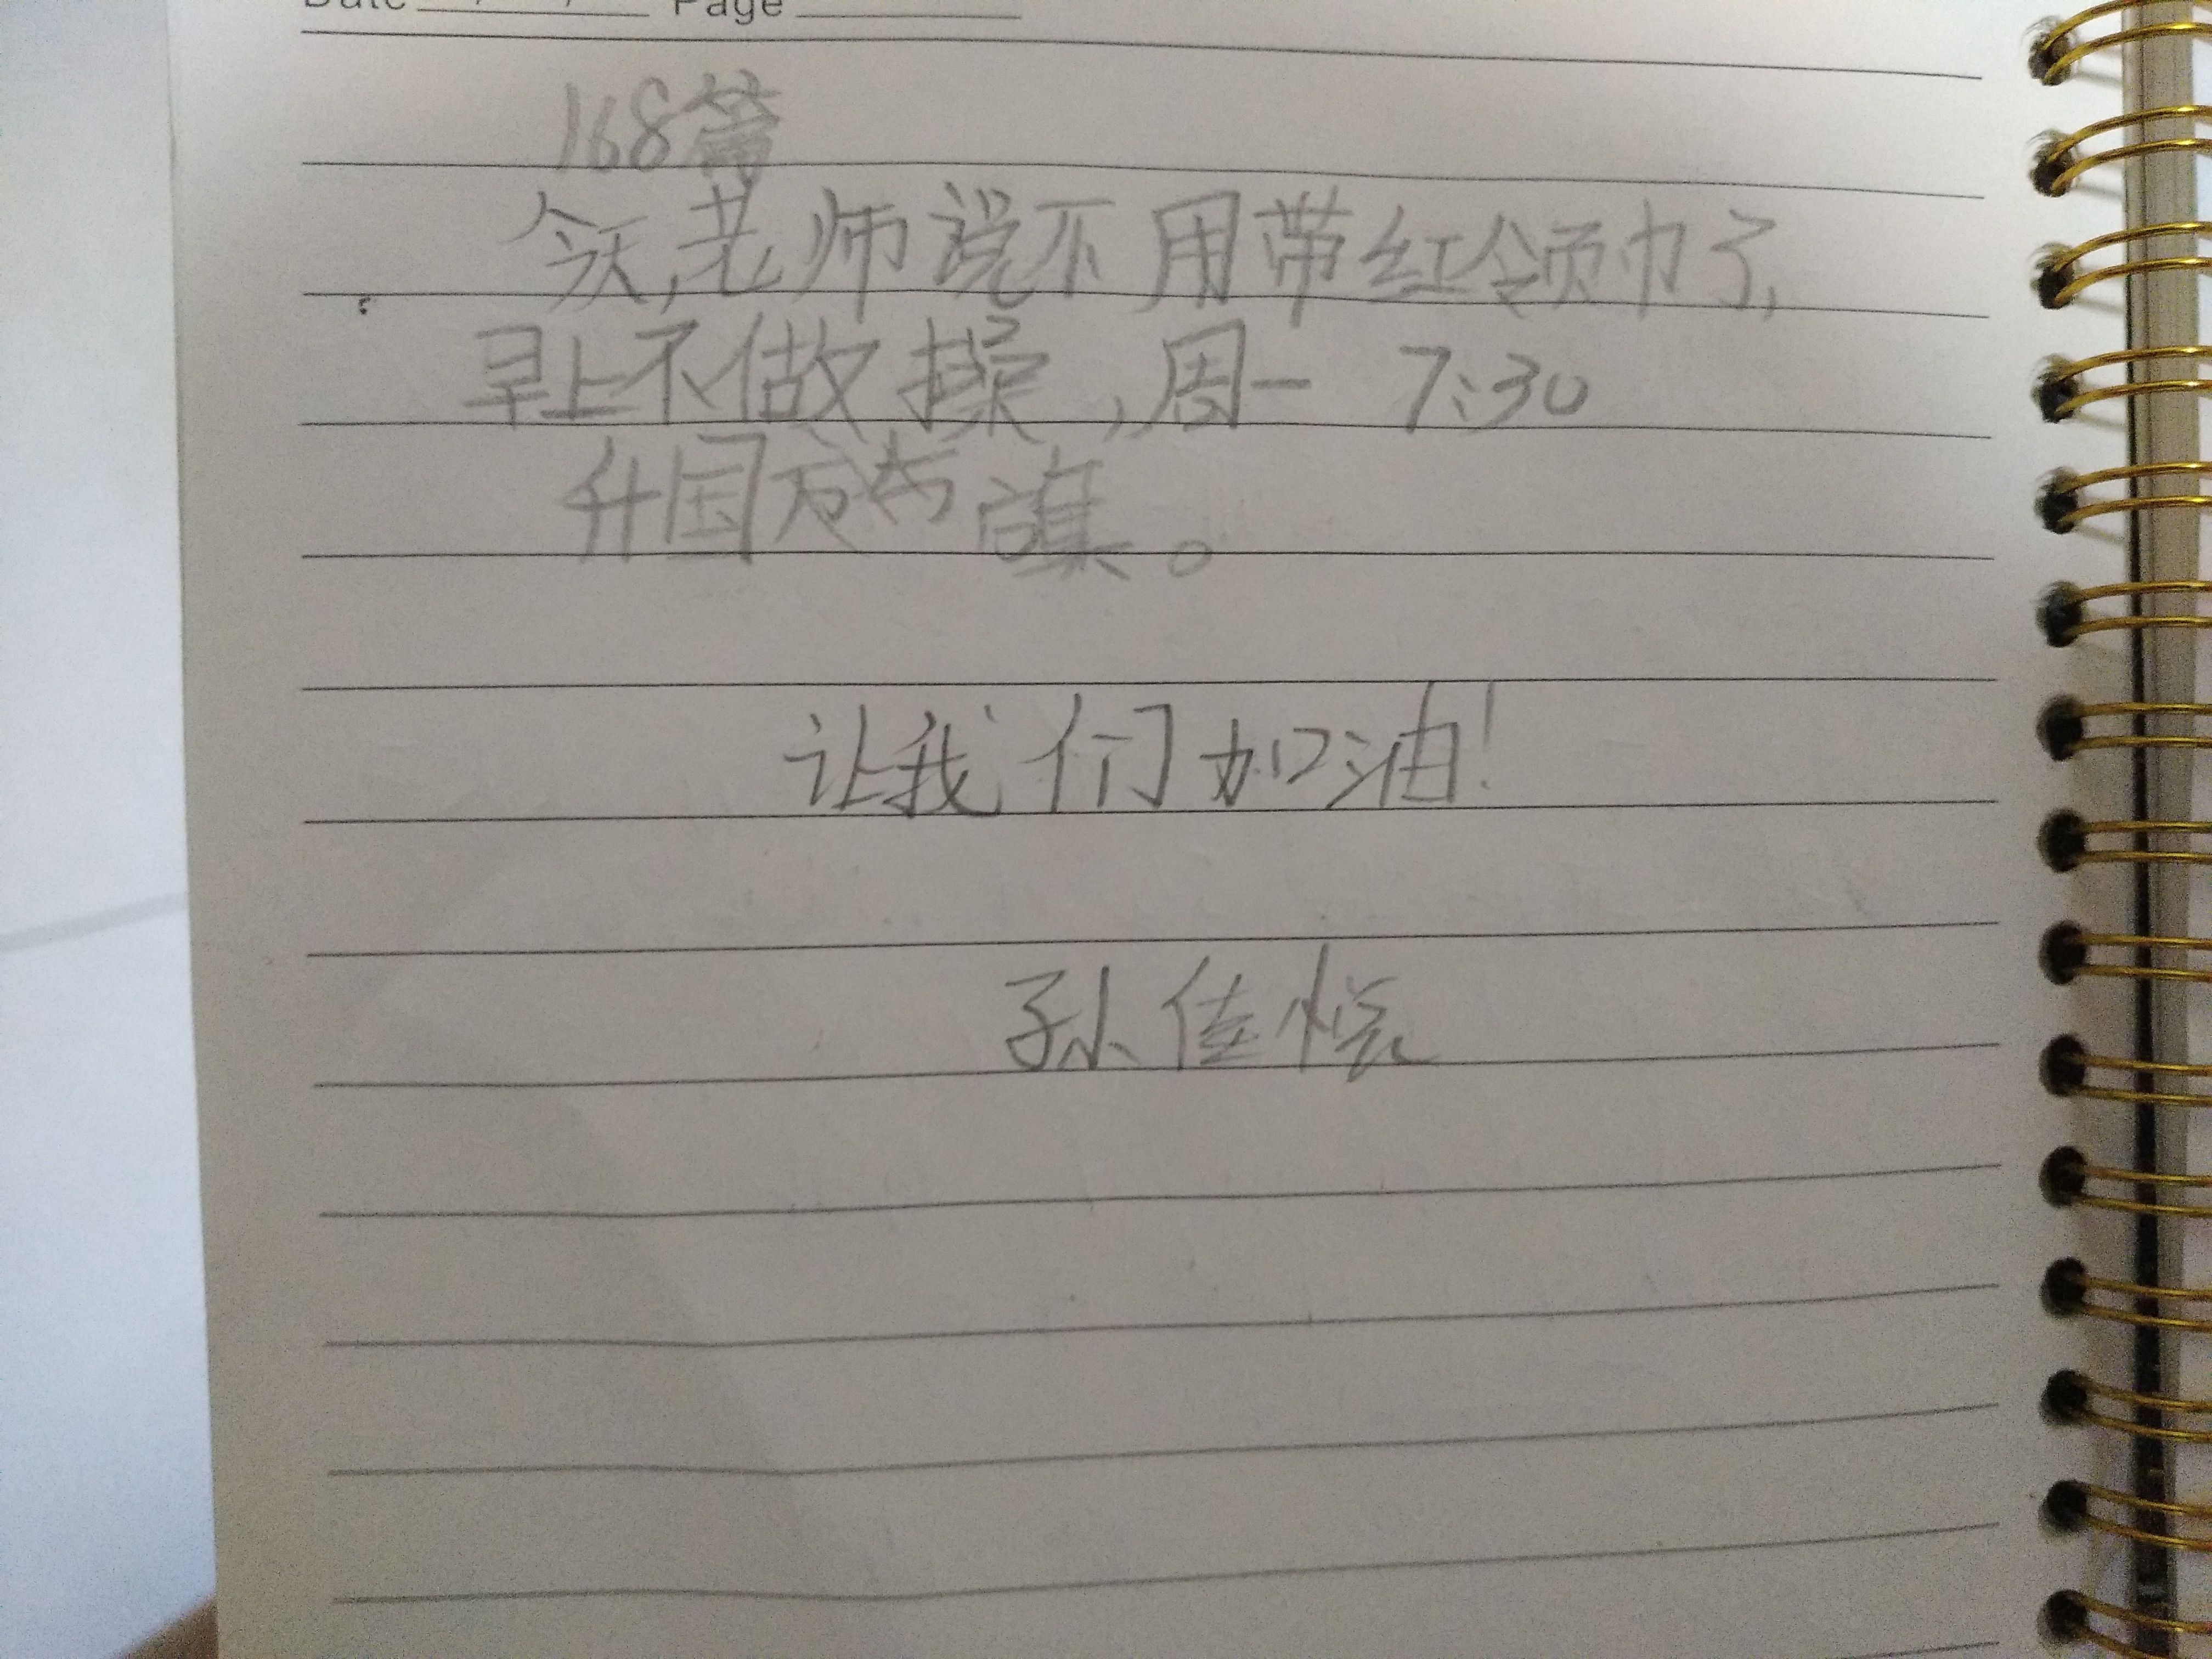 Date Page
168篇
今天,老师说不用带红领巾了,
早上不做操,周一 7:30
升国旗。
让我们加油!
孙佳悦